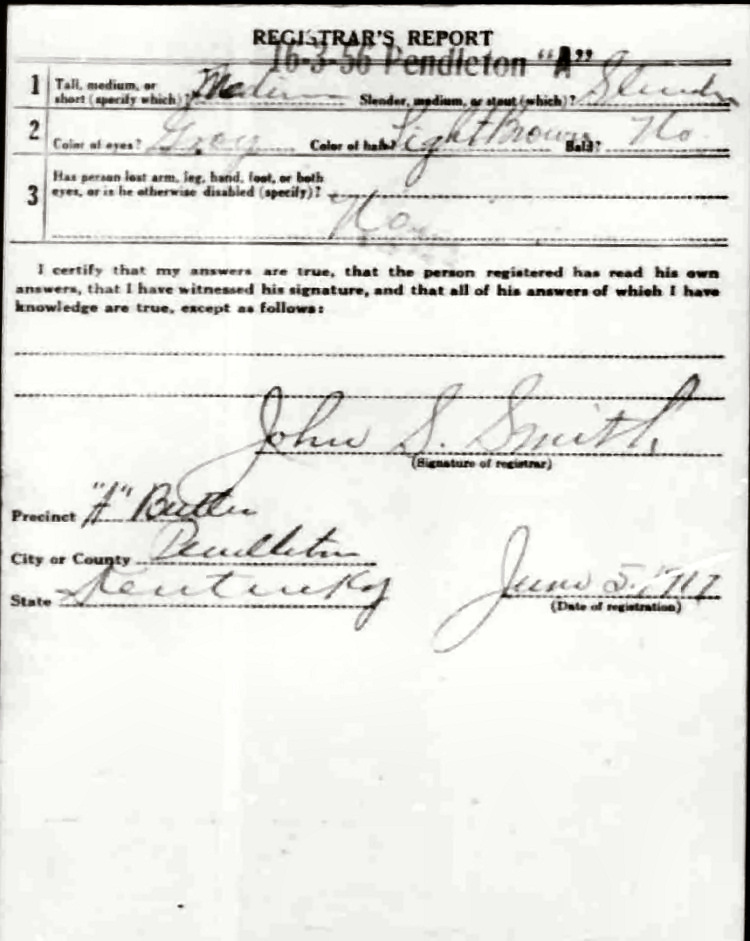 REGISTRAR'S REPORT
16-3-56 Pendleton "A"
1 Tall, medium, or
short (specify which)? Medium Slender, medium, or stout (which)? Slender
2 Color of eyes? Gray Color of hair? Light Brown Bald? No
3 Has person lost arm, leg, hand, foot, or both
eyes, or is he otherwise disabled (specify)?
No
I certify that my answers are true, that the person registered has read his own
answers, that I have witnessed his signature, and that all of his answers of which I have
knowledge are true, except as follows:
John S. Smith
(Signature of registrar)
Precinct "A" Butler
City or County Pendleton
State Kentucky June 5, 1917
(Date of registration)